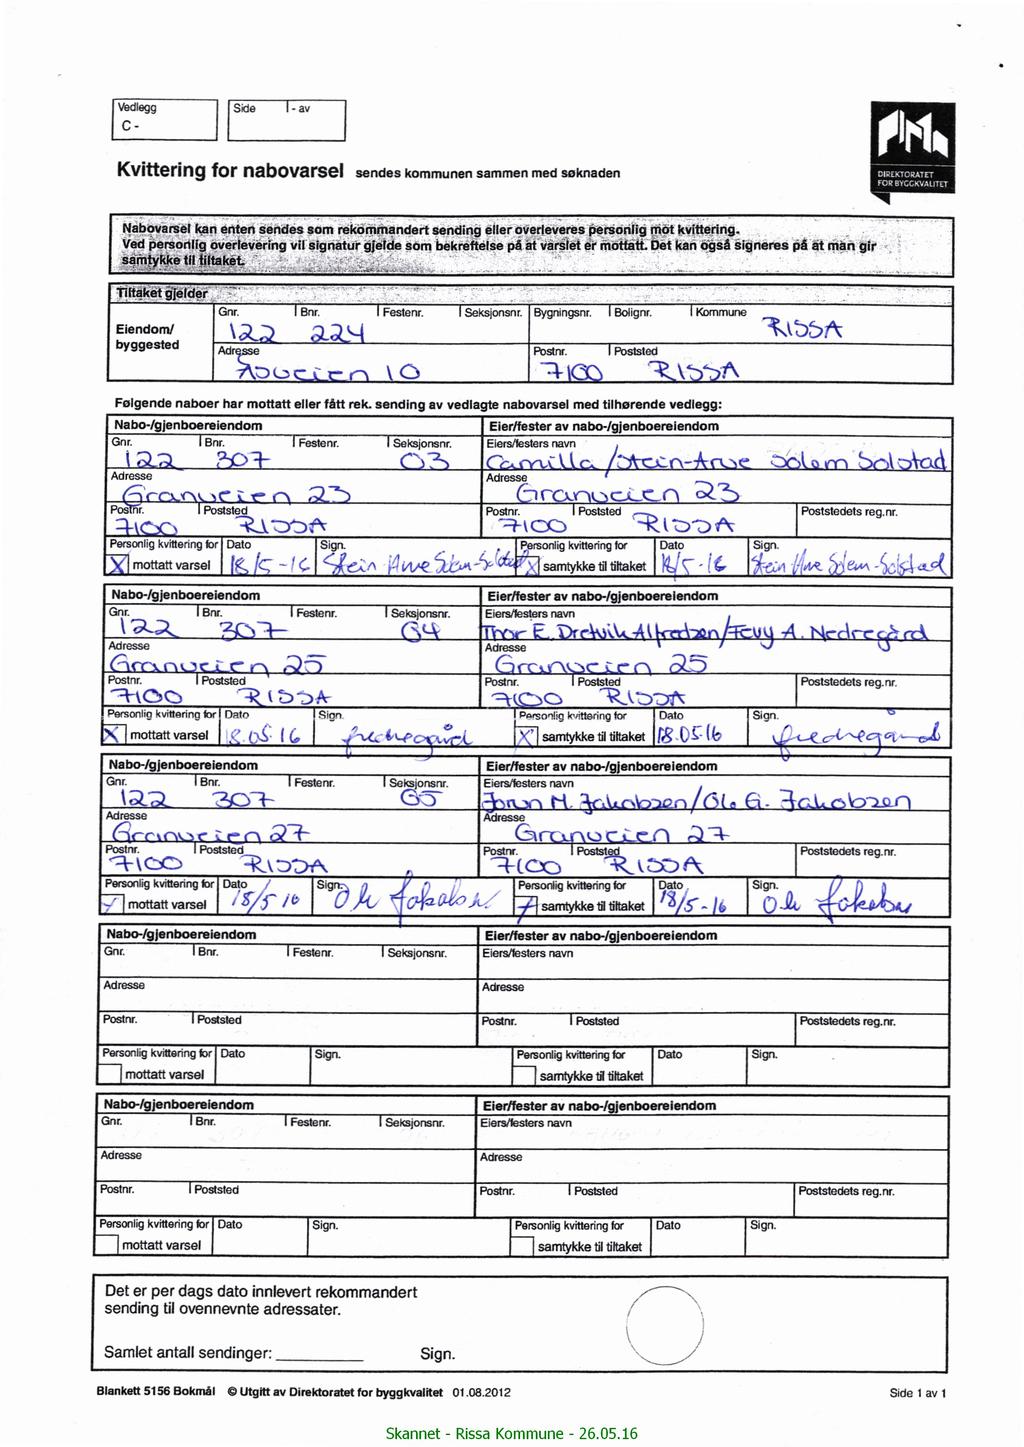 Vedlegg
C -
Side - av
DIREKTORATET
FOR BYGGKVALITET
Kvittering for nabovarsel sendes kommunen sammen med søknaden
Nabovarsel kan enten sendes som rekommandert sending eller overleveres personlig mot kvittering.
Ved personlig overlevering vil signatur gjelde som bekreftelse på at varslet er mottatt. Det kan også signeres på at man gir
samtykke til tiltaket.
Tiltaket gjelder
Eiendom/
byggested
Gnr. Bnr. Festenr. Seksjonsnr. Bygningsnr. Bolignr. Kommune
122 224 RISSA
Adresse Postnr. Poststed
Åsveien 10 7100 RISSA
Følgende naboer har mottatt eller fått rek. sending av vedlagte nabovarsel med tilhørende vedlegg:
Nabo-/gjenboereiendom Eier/fester av nabo-/gjenboereiendom
Gnr. Bnr. Festenr. Seksjonsnr. Eiers/festers navn
122 307 03 Camilla/Stein-Arve Solem Solstad
Adresse Adresse
Granveien 23 Granveien 23
Postnr. Poststed Postnr. Poststed Poststedets reg.nr.
7100 RISSA 7100 RISSA
Personlig kvittering for Dato Sign. Personlig kvittering for Dato Sign.
X mottatt varsel 18/5-16 Stein Arve Solem-Solstad X samtykke til tiltaket 18/5-16 Stein Arve Solem-Solstad
Nabo-/gjenboereiendom Eier/fester av nabo-/gjenboereiendom
Gnr. Bnr. Festenr. Seksjonsnr. Eiers/festers navn
122 307 04 Thor E. Dretvik Alfredzen/Tevy A. Nedregård
Adresse Adresse
Granveien 25 Granveien 25
Postnr. Poststed Postnr. Poststed Poststedets reg.nr.
7100 RISSA 7100 RISSA
Personlig kvittering for Dato Sign. Personlig kvittering for Dato Sign.
X mottatt varsel 18.05.16 X samtykke til tiltaket 18.05.16
Nabo-/gjenboereiendom Eier/fester av nabo-/gjenboereiendom
Gnr. Bnr. Festenr. Seksjonsnr. Eiers/festers navn
122 307 05 Jorun M. Jakobzen/Ole G. Jakobzen
Adresse Adresse
Granveien 27 Granveien 27
Postnr. Poststed Postnr. Poststed Poststedets reg.nr.
7100 RISSA 7100 RISSA
Personlig kvittering for Dato Sign. Personlig kvittering for Dato Sign.
mottatt varsel 18/5 16 Ole Jakobsen samtykke til tiltaket 18/5-16 Ole Jakobsen
Nabo-/gjenboereiendom Eier/fester av nabo-/gjenboereiendom
Gnr. Bnr. Festenr. Seksjonsnr. Eiers/festers navn
Adresse Adresse
Postnr. Poststed Postnr. Poststed Poststedets reg.nr.
Personlig kvittering for Dato Sign. Personlig kvittering for Dato Sign.
mottatt varsel samtykke til tiltaket
Nabo-/gjenboereiendom Eier/fester av nabo-/gjenboereiendom
Gnr. Bnr. Festenr. Seksjonsnr. Eiers/festers navn
Adresse Adresse
Postnr. Poststed Postnr. Poststed Poststedets reg.nr.
Personlig kvittering for Dato Sign. Personlig kvittering for Dato Sign.
mottatt varsel samtykke til tiltaket
Det er per dags dato innlevert rekommandert
sending til ovennevnte adressater.
Samlet antall sendinger: Sign.
Blankett 5156 Bokmål © Utgitt av Direktoratet for byggkvalitet 01.08.2012 Side 1 av 1
Skannet - Rissa Kommune - 26.05.16